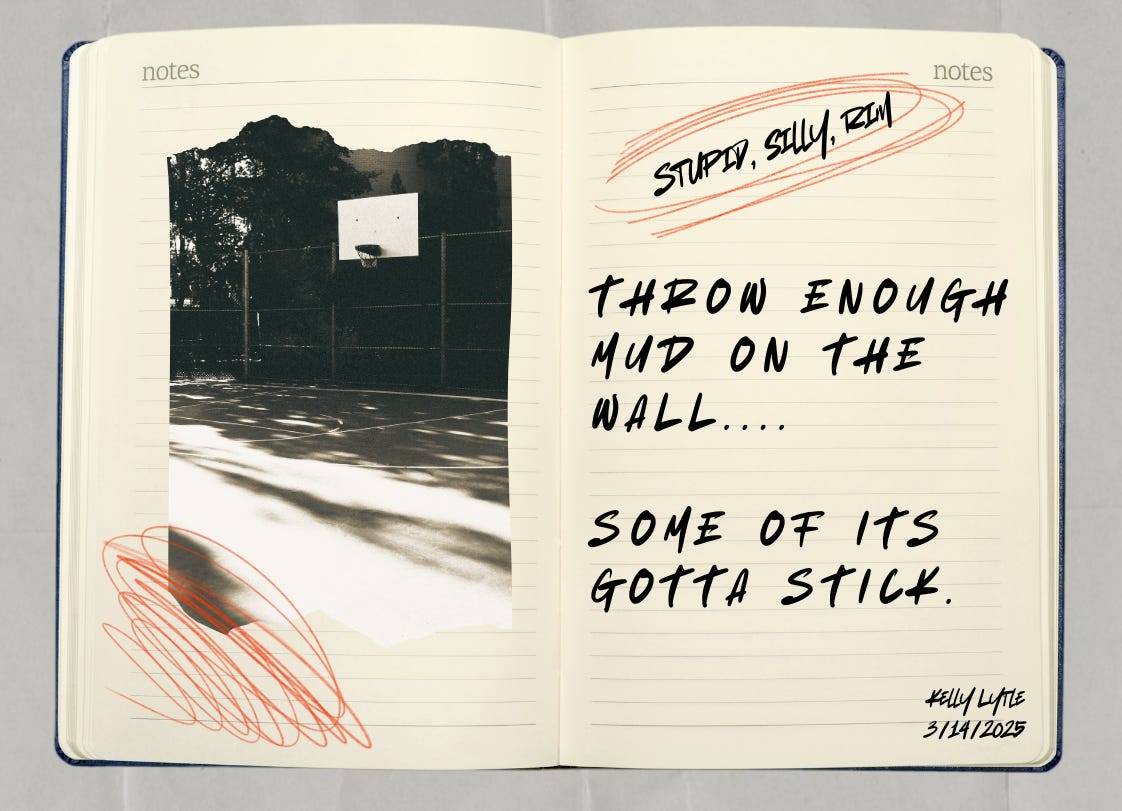 notes
notes
STUPID, SILLY, RIM
THROW ENOUGH
MUD ON THE
WALL....
SOME OF ITS
GOTTA STICK.
KELLY LYTLE
3/14/2025